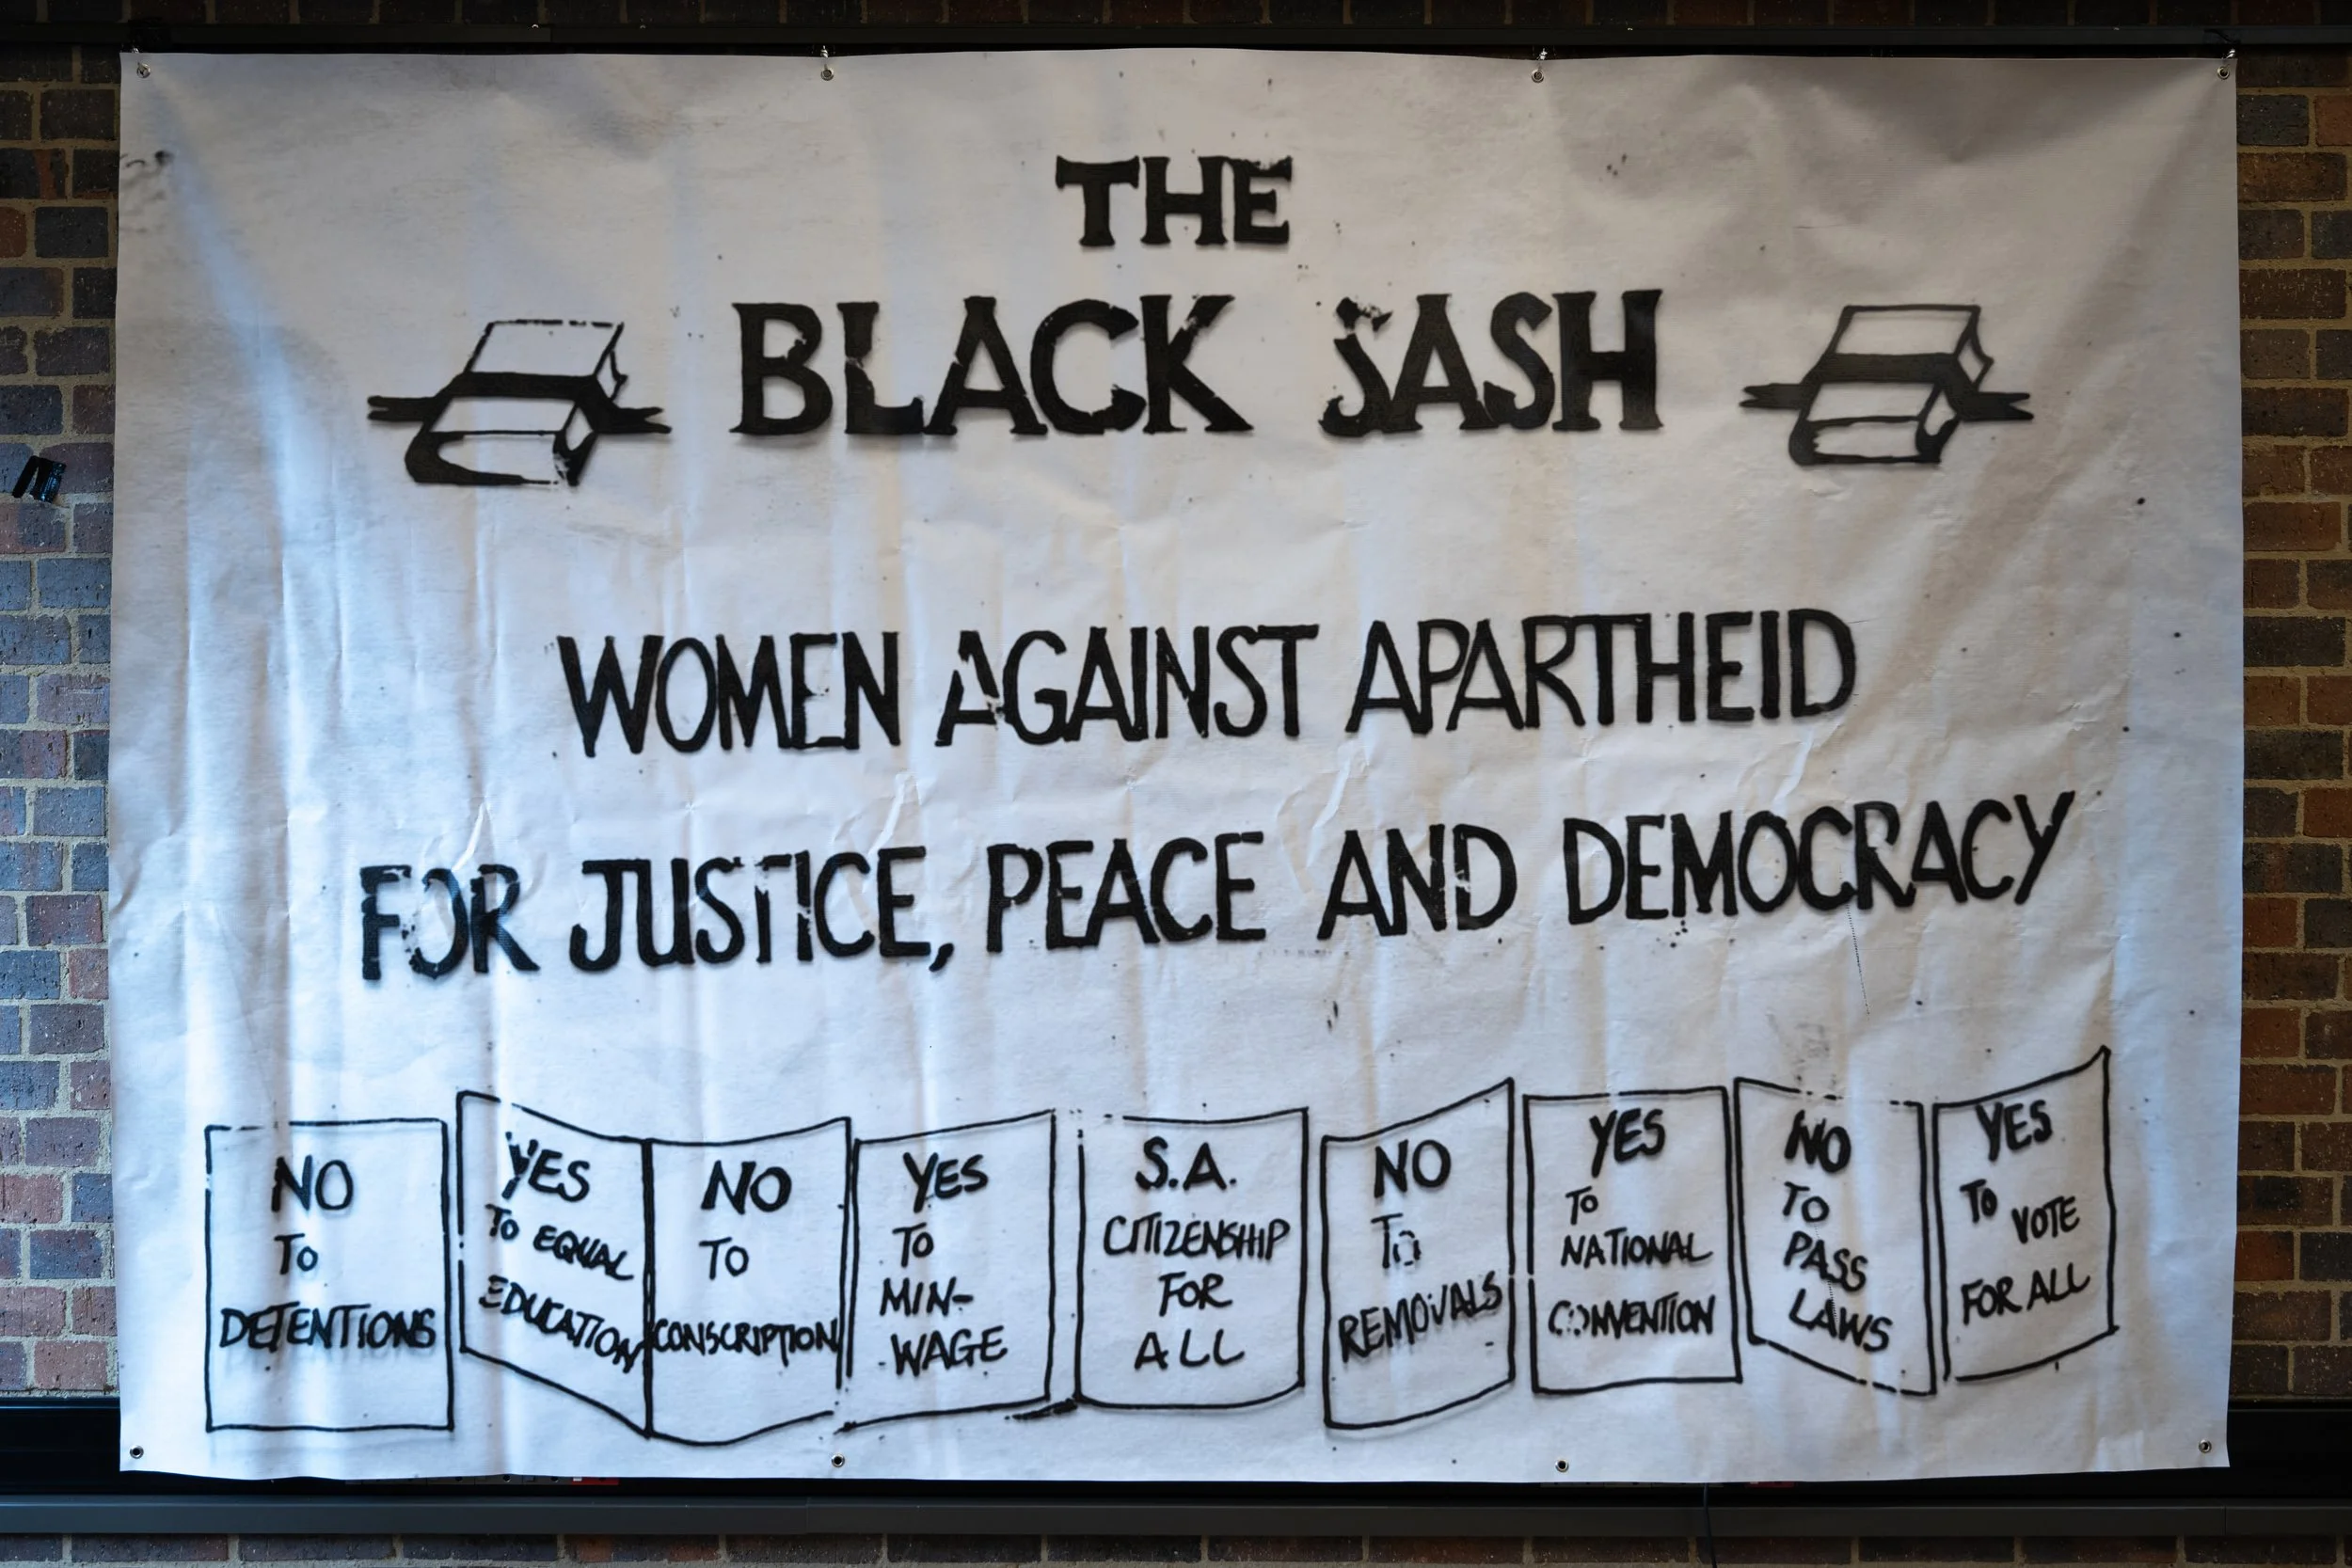 THE
BLACK SASH
WOMEN AGAINST APARTHEID
FOR JUSTICE, PEACE AND DEMOCRACY
NO
TO
DETENTIONS
YES
TO EQUAL
EDUCATION
NO
TO
CONSCRIPTION
YES
TO
MIN-
-WAGE
S.A.
CITIZENSHIP
FOR
ALL
NO
TO
REMOVALS
YES
TO
NATIONAL
CONVENTION
NO
TO
PASS
LAWS
YES
TO VOTE
FOR ALL